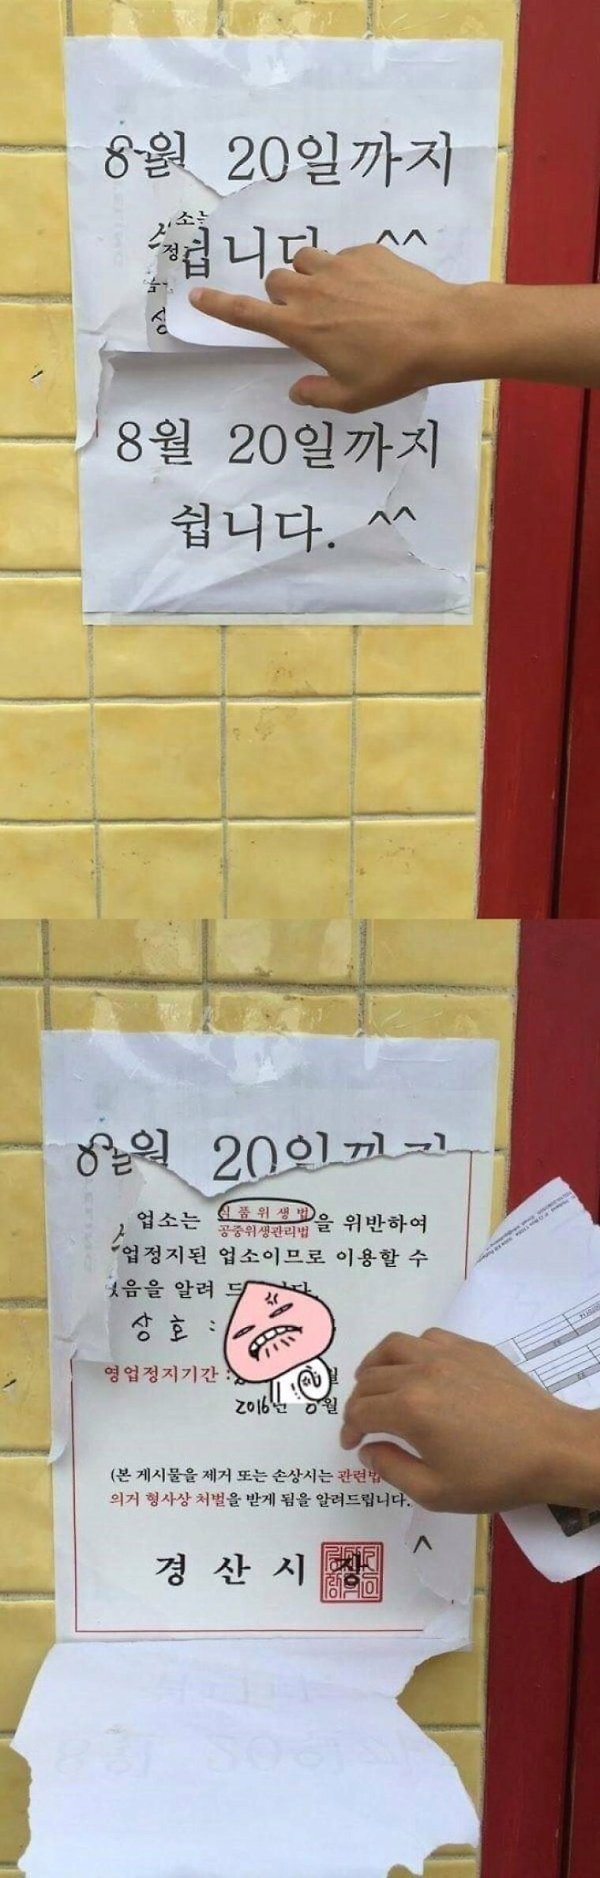 8월 20일까지
쉽니다. ^^
8월 20일까지
쉽니다. ^^
8월 20일까지
업소는 식품위생법 을 위반하여
공중위생관리법
업정지된 업소이므로 이용할 수
음을 알려 드
상호 :
영업정지기간 :
2016년 월
(본 게시물을 제거 또는 손상시는 관련법
의거 형사상 처벌을 받게 됨을 알려드립니다.
^
경산시장